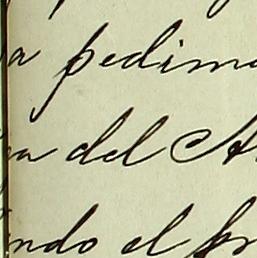 a pedime
a del A
ndo el pr